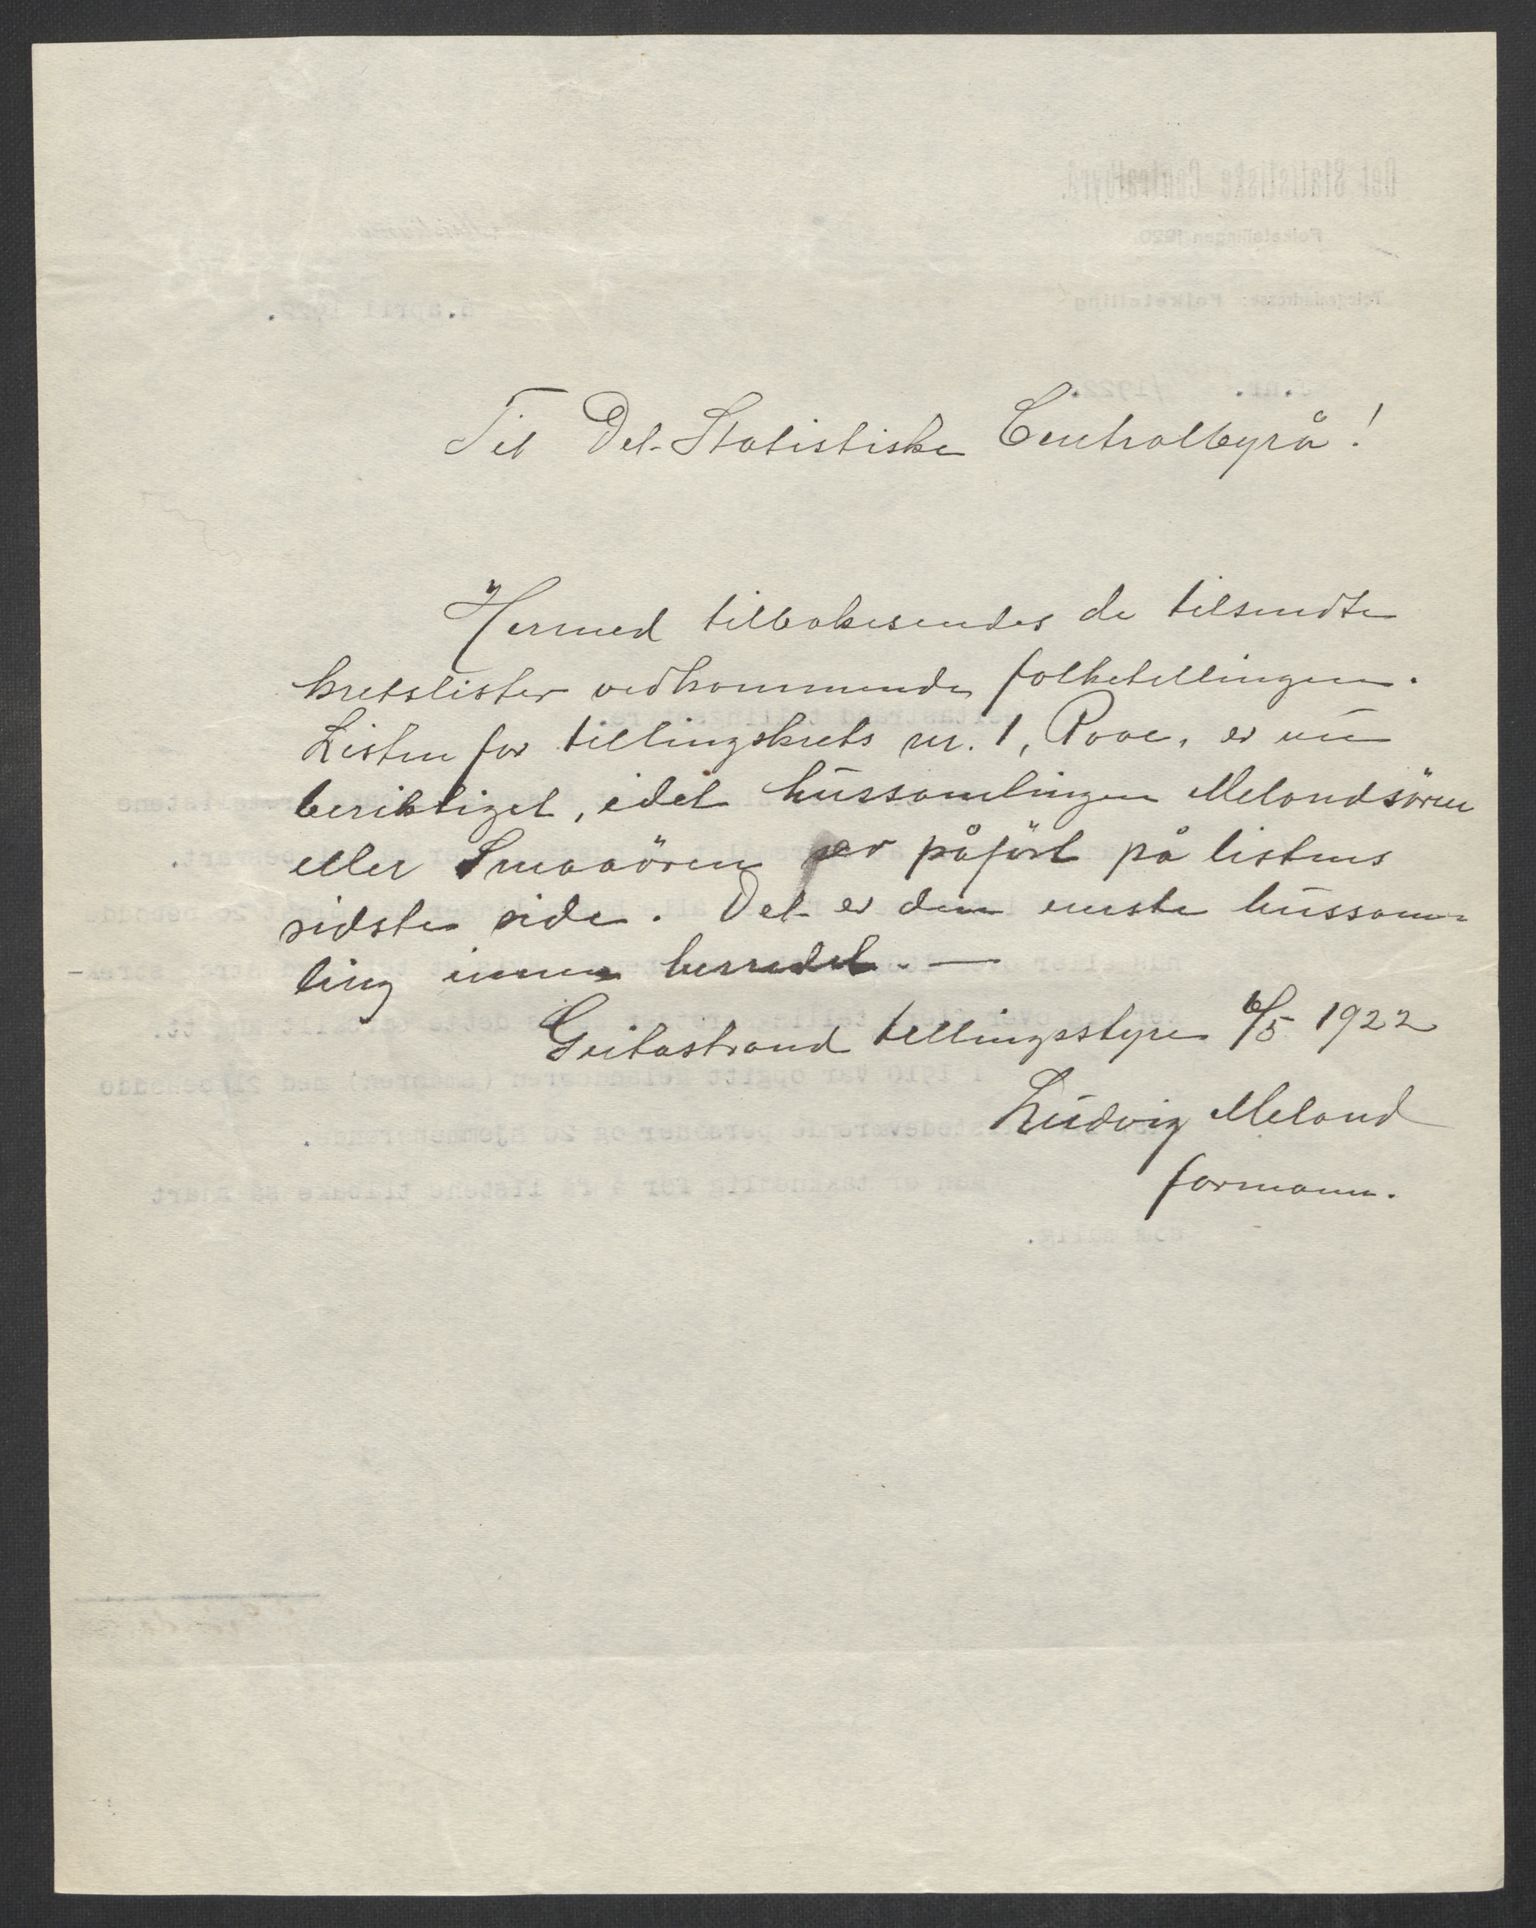 Til Det Statistiske Centralbyrå!
Hermed tilbakesendes de tilsendte
kretslister vedkommende folketellingen.
Listen for tellingskrets nr. 1, Rove, er nu
beriktiget, idet hussamlingen Melandsören
eller Smaaören er påfört på listens
sidste side. Det er den eneste hussam-
ling innen herredet. —
Geitastrand tellingsstyre 6/5 1922
Ludvig Meland
formann.